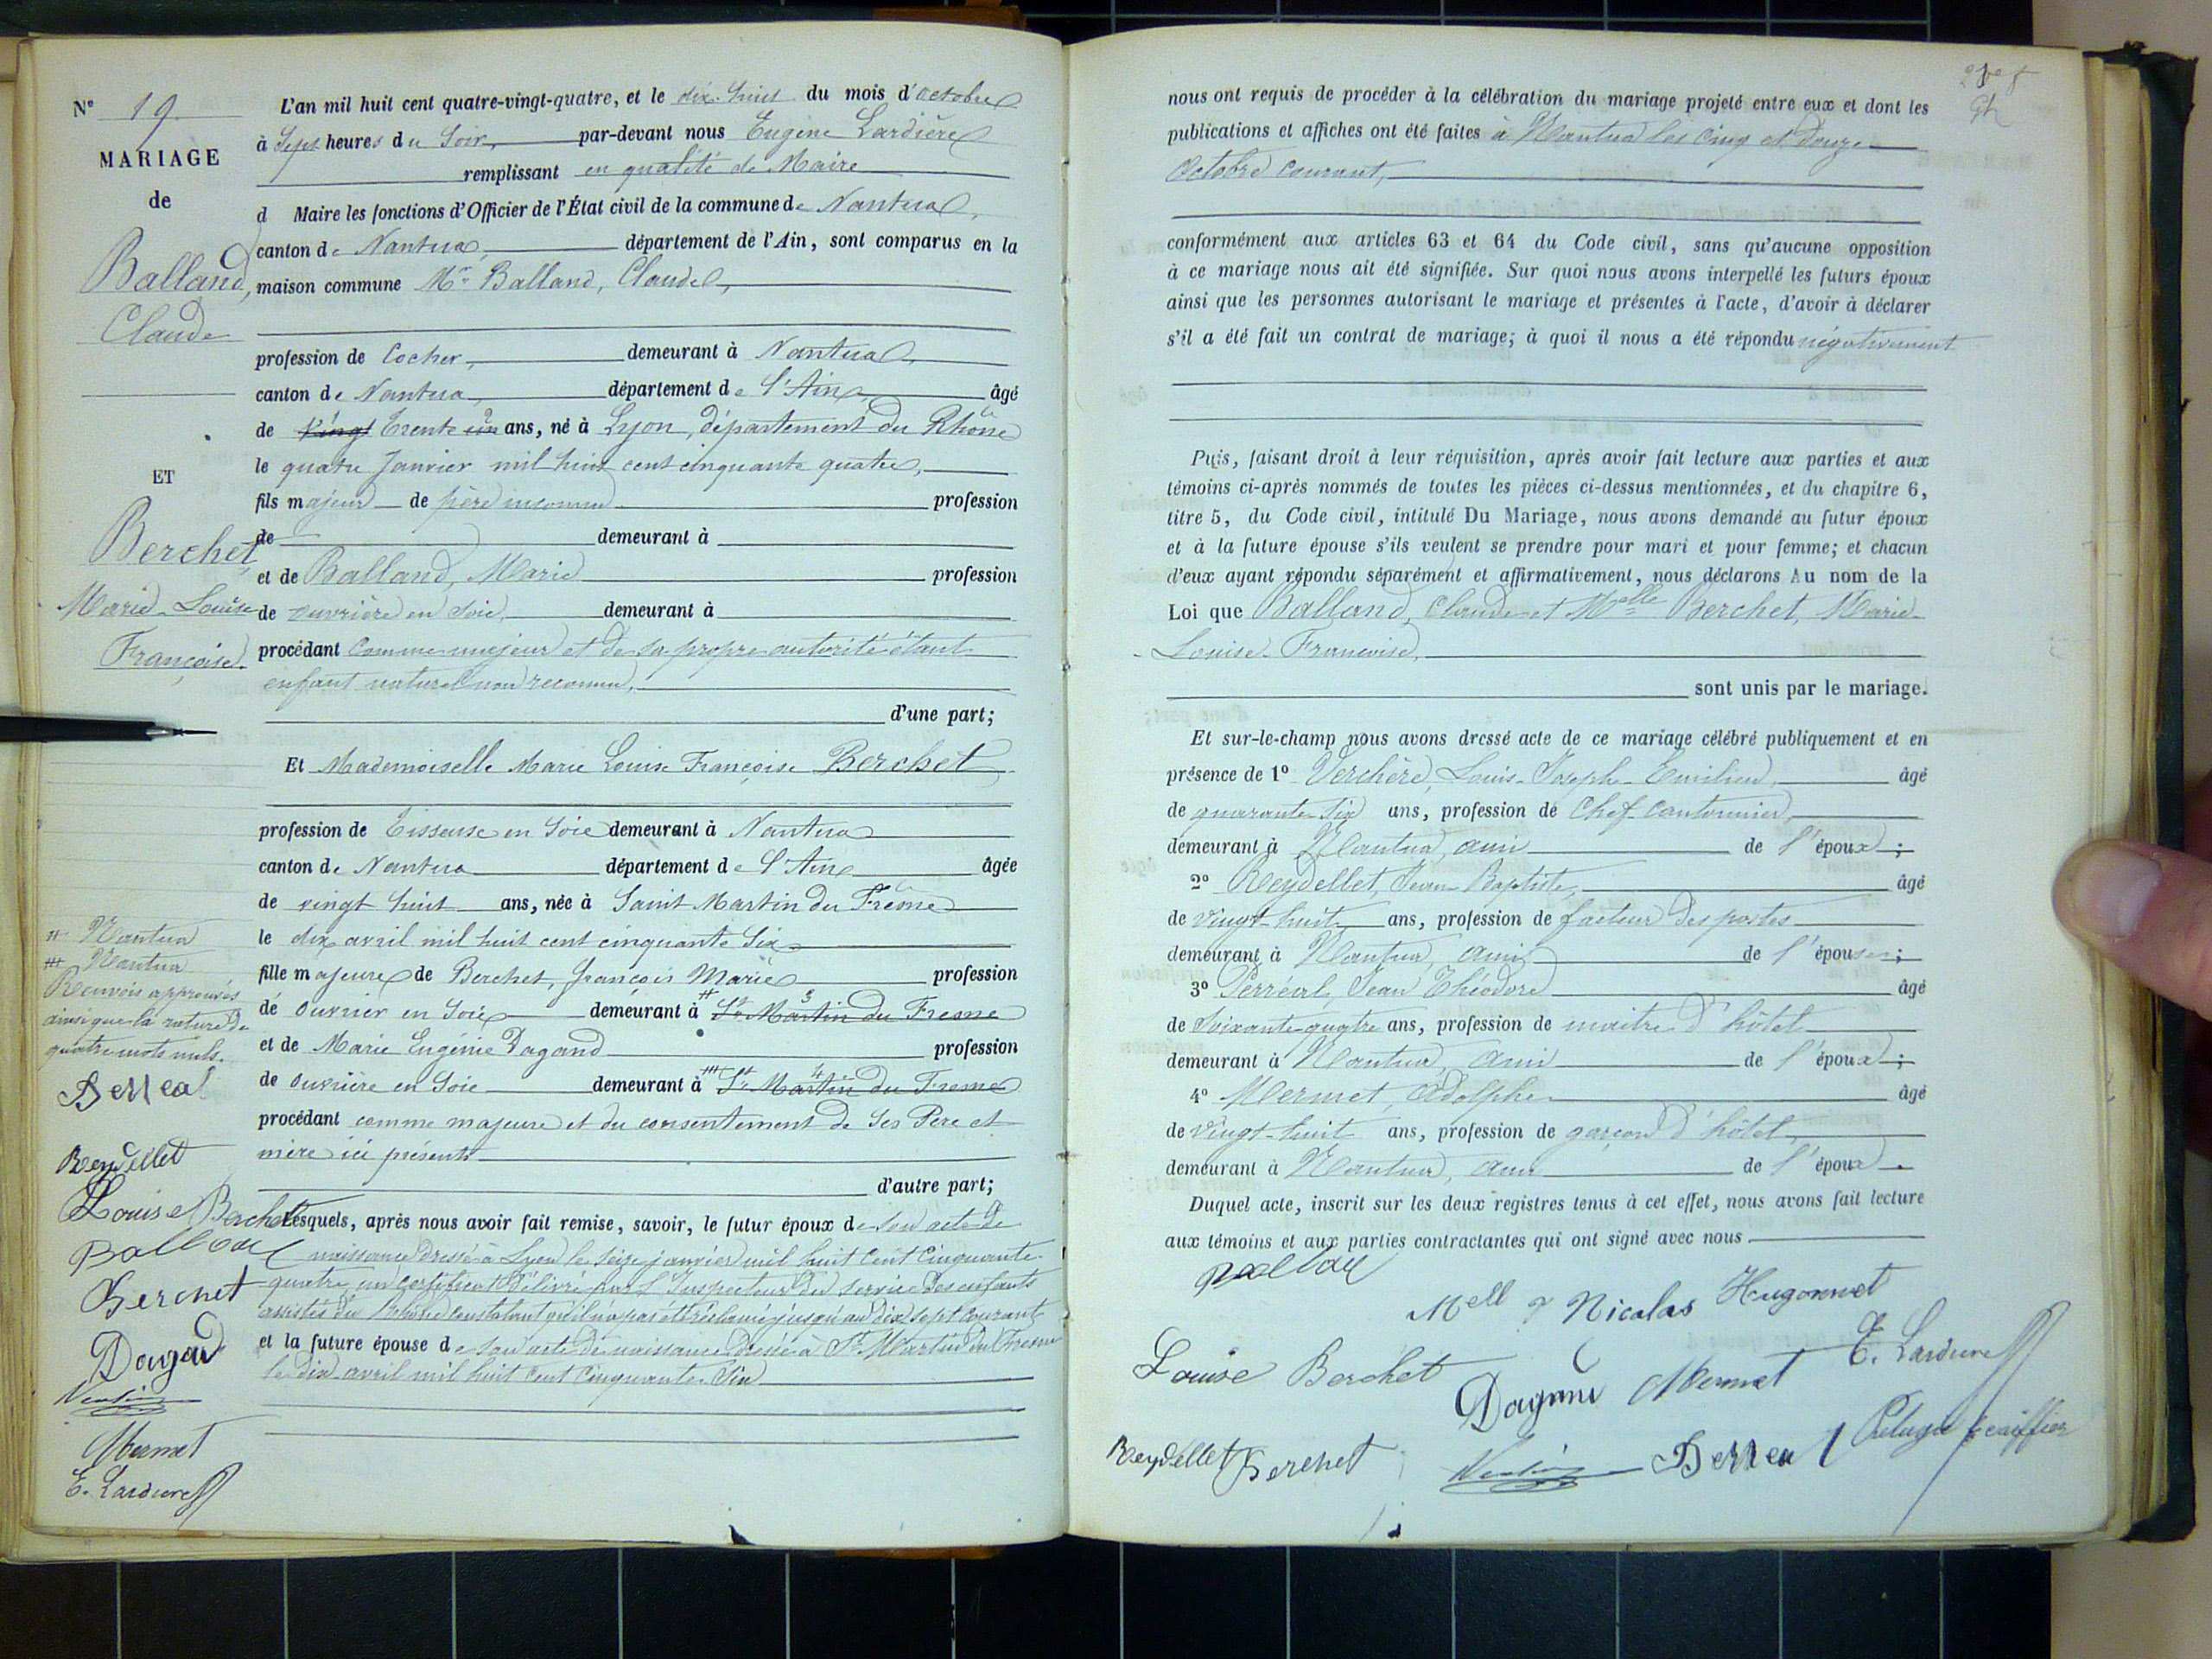 N° 19.
MARIAGE
de
Balland,
Claude
ET
Berchet,
Marie-Louise
Françoise.
# Nantua
## Nantua
Renvois approuvés
ainsi que la rature de
quatre mots nuls.
Perreal
Reydellet
Louise Berchet
Balland
Berchet
Dagand
Mermet
E. Lardière
L'an mil huit cent quatre-vingt-quatre, et le dix-huit du mois d'octobre
à Sept heures du Soir, par-devant nous Eugène Lardière
remplissant en qualité de Maire
d Maire les fonctions d'Officier de l'État civil de la commune de Nantua,
canton de Nantua, département de l'Ain, sont comparus en la
maison commune Mr Balland, Claude,
profession de Cocher, demeurant à Nantua,
canton de Nantua, département de l'Ain, âgé
de vingt Trente un ans, né à Lyon, département du Rhône
le quatre Janvier mil huit cent cinquante quatre,
fils majeur de père inconnu profession
de demeurant à
et de Balland, Marie profession
de ouvrière en soie, demeurant à
procédant comme majeur et de sa propre autorité étant
enfant naturel non reconnu,
d'une part;
Et Mademoiselle Marie Louise Françoise Berchet
profession de Tisseuse en Soie demeurant à Nantua
canton de Nantua département de l'Ain âgée
de vingt huit ans, née à Saint Martin du Fresne
le dix avril mil huit cent cinquante Six
fille majeure de Berchet, françois Marie profession
de Ouvrier en Soie demeurant à # St Martin du Fresne
et de Marie Eugénie Dagand profession
de Ouvrière en Soie demeurant à ## St Martin du Fresne
procédant comme majeure et du consentement de Ses Père et
mère ici présents
d'autre part;
Lesquels, après nous avoir fait remise, savoir, le futur époux de son acte de
naissance dressé à Lyon le seize janvier mil huit cent cinquante
quatre, un certificat délivré par l'Inspecteur du service des enfants
assistés du Rhône constatant qu'il n'a pas été réclamé jusqu'au dix sept courant
et la future épouse de son acte de naissance dressé à St Martin du Fresne
le dix avril mil huit cent cinquante Six
nous ont requis de procéder à la célébration du mariage projeté entre eux et dont les
publications et affiches ont été faites à Nantua les cinq et douze
Octobre courant,
conformément aux articles 63 et 64 du Code civil, sans qu'aucune opposition
à ce mariage nous ait été signifiée. Sur quoi nous avons interpellé les futurs époux
ainsi que les personnes autorisant le mariage et présentes à l'acte, d'avoir à déclarer
s'il a été fait un contrat de mariage; à quoi il nous a été répondu négativement
Puis, faisant droit à leur réquisition, après avoir fait lecture aux parties et aux
témoins ci-après nommés de toutes les pièces ci-dessus mentionnées, et du chapitre 6,
titre 5, du Code civil, intitulé Du Mariage, nous avons demandé au futur époux
et à la future épouse s'ils veulent se prendre pour mari et pour femme; et chacun
d'eux ayant répondu séparément et affirmativement, nous déclarons Au nom de la
Loi que Balland, Claude et Melle Berchet, Marie-
-Louise-Françoise,
sont unis par le mariage.
Et sur-le-champ nous avons dressé acte de ce mariage célébré publiquement et en
présence de 1° Verchère, Louis-Joseph-Emilien, âgé
de quarante-six ans, profession de Chef-Cantonnier
demeurant à Nantua, ami de l'époux;
2° Reydellet, Jean Baptiste, âgé
de vingt-huit ans, profession de facteur des postes
demeurant à Nantua, ami de l'épouse;
3° Perréal, Jean Théodore âgé
de soixante-quatre ans, profession de maître d'hôtel
demeurant à Nantua, ami de l'époux;
4° Mermet, Adolphe âgé
de vingt-huit ans, profession de garçon d'hôtel,
demeurant à Nantua, ami de l'époux.
Duquel acte, inscrit sur les deux registres tenus à cet effet, nous avons fait lecture
aux témoins et aux parties contractantes qui ont signé avec nous
Balland
Mell Nicolas Hugonnet
Louise Berchet
Dagand Mermet E. Lardière
Reydellet Berchet Perreal